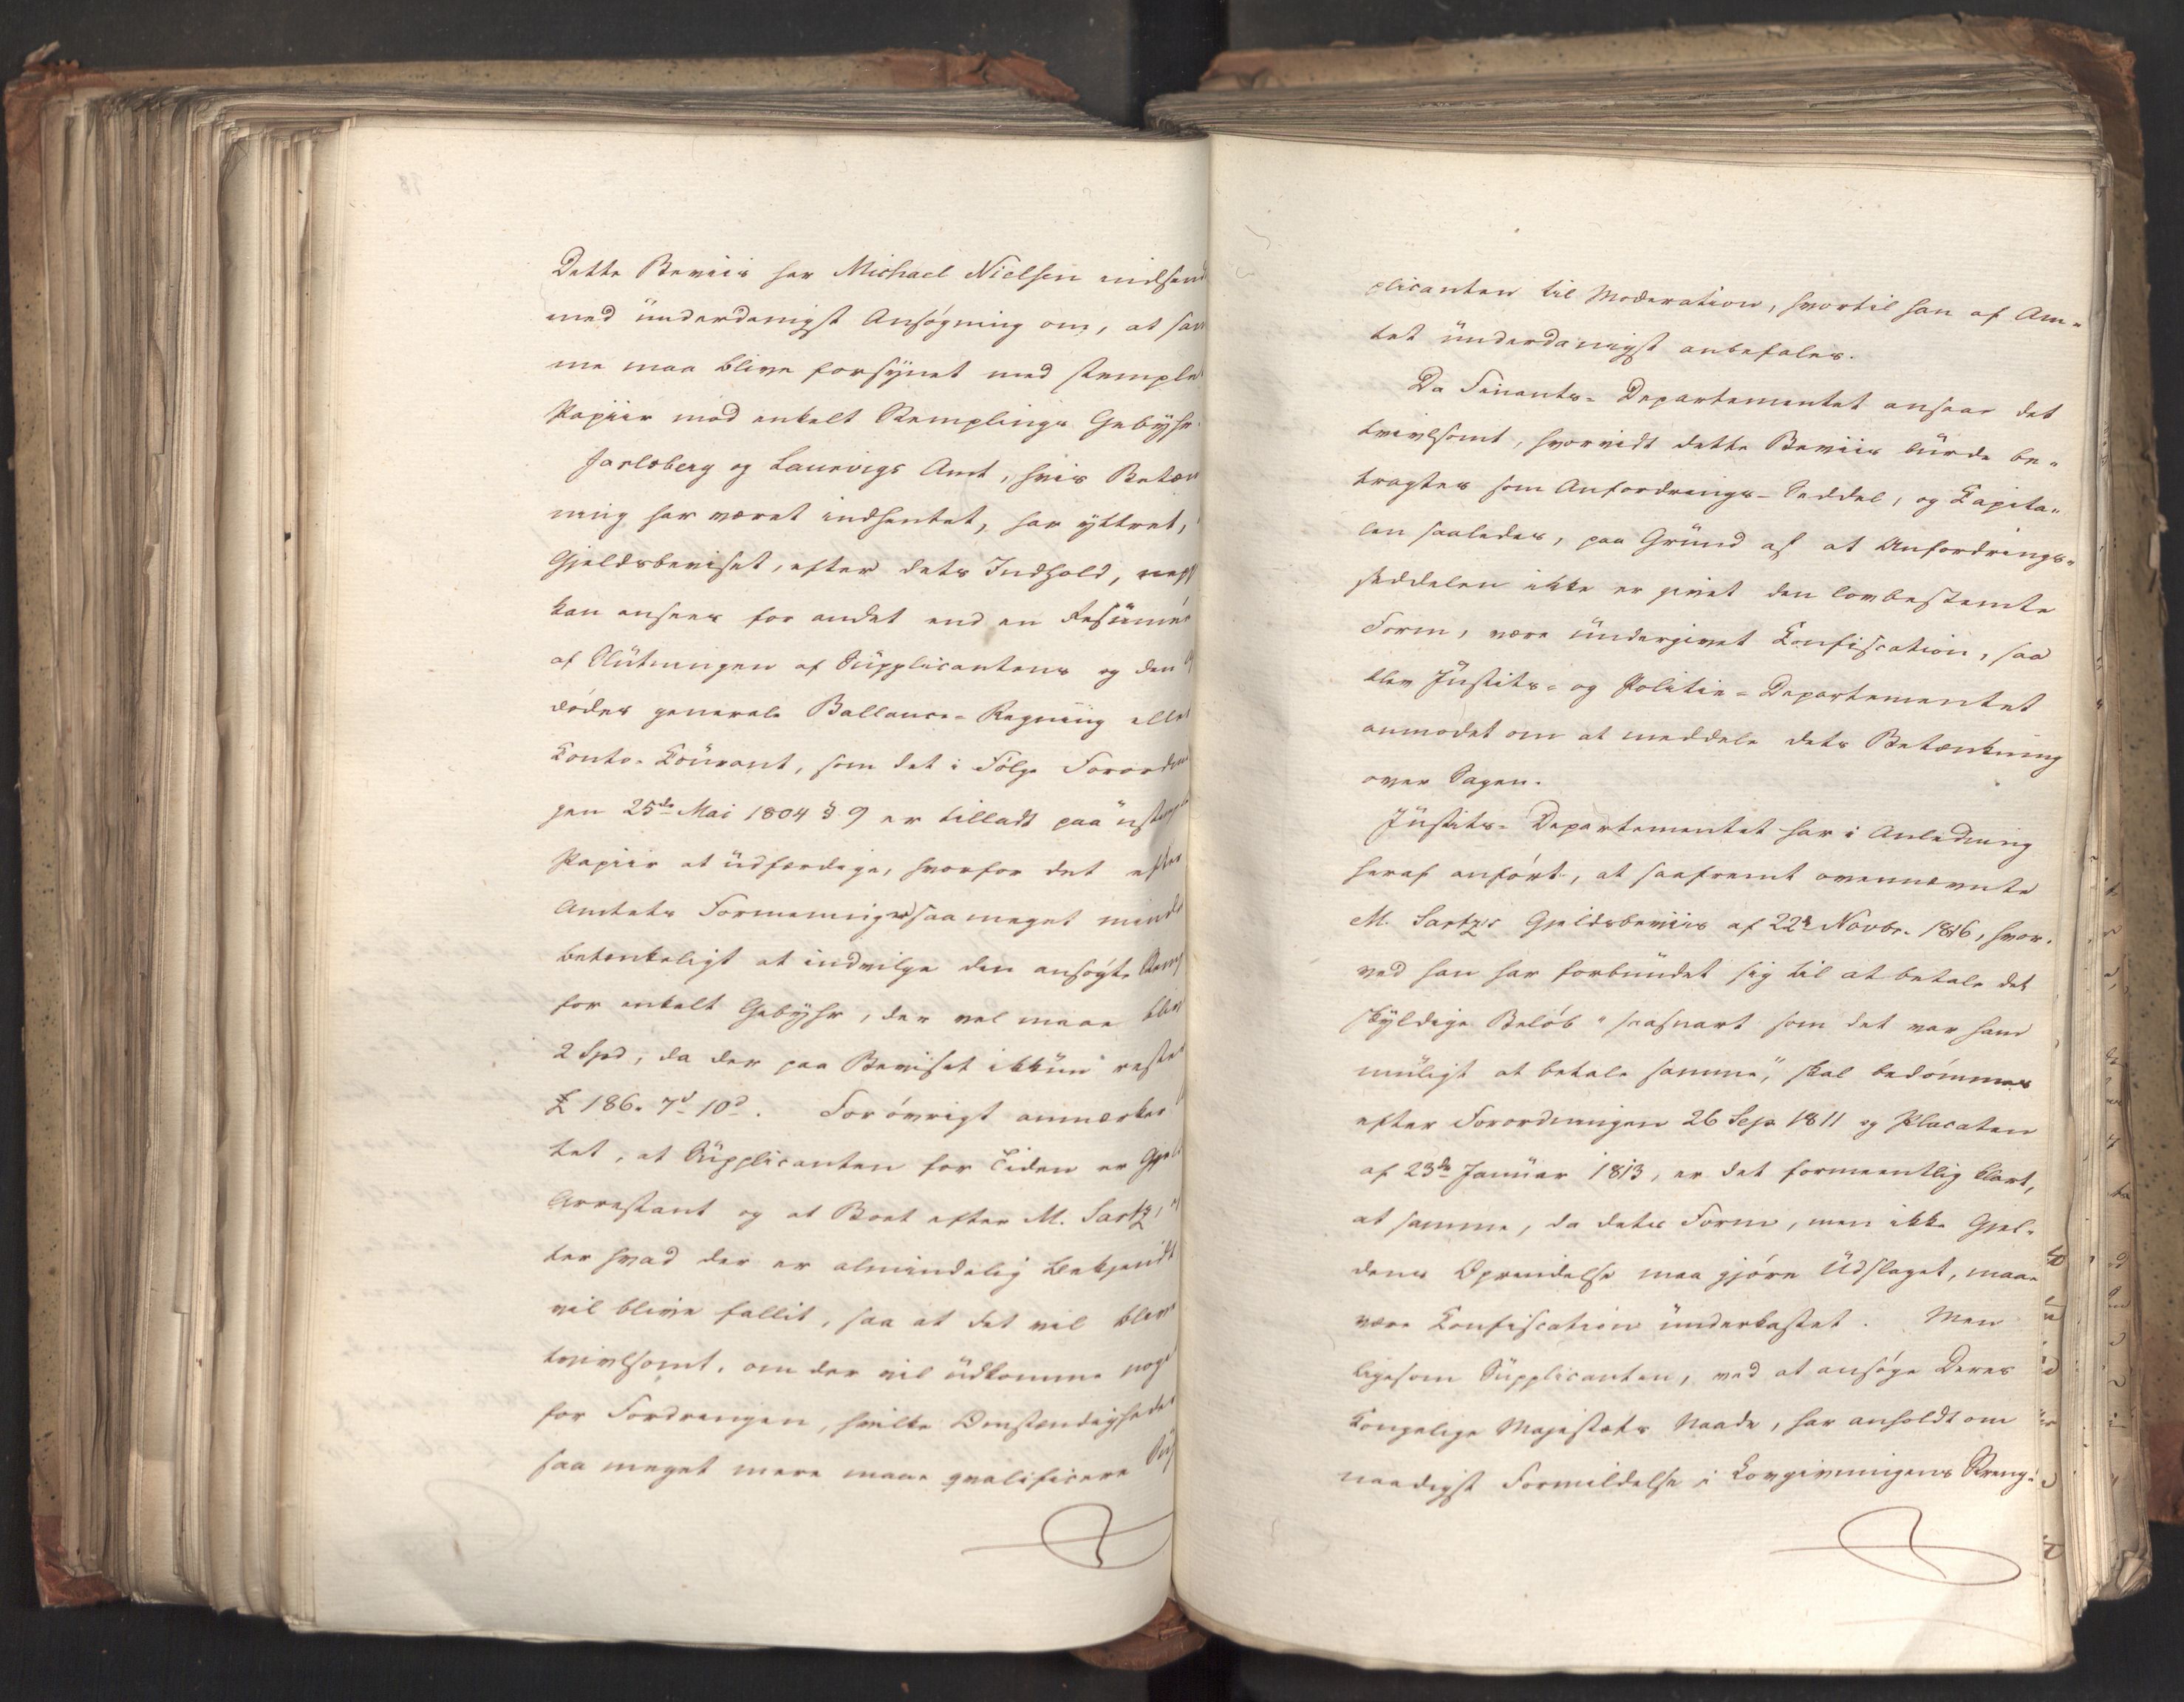 Dette Beviis har Michael Nielsen indsendt
med underdanigst Ansøgning om, at sam
me maa blive forsynet med stemplet
Papiir mod enkelt Stemplings Gebyhr.
Jarlsberg og Laurvigs Amt, hvis Betæn
ning har været indhentet, har yttret,
Gjeldsbeviset, efter dets Indhold, nepp
kan ansees for andet end en Resümée
af Slutningen af Supplicantens og den
dødes generale Ballance-Regning eller
Conto-Courant, som det i Følge Forordnin
gen 25de Mai 1804 § 9 er tilladt paa ustemp
Papiir at udfærdige, hvorfor det efter
Amtets Formening er saa meget mindre
betænkeligt at indvilge den ansøgte Stemp
for enkelt Gebyhr, der vel maae blive
2 Spd, da der paa Beviset ikkun rester
£ 186. 7s 10d. Forøvrigt anmærker
tet, at Supplicanten for Tiden er Gjelds
Arrestant og at Boet efter M. Sartz, ef
ter hvad der er almindelig bekjendt
vil blive fallit, saa at det vil blive
tvivlsomt, om der vil udkomme noget
for Fordringen, hvilke Omstændigheder
saa meget mere maae qvalificere Sup
plicanten til Moderation, hvortil han af Am-
tet underdanigst anbefales.
Da Finants-Departementet ansaae det
tvivlsomt, hvorvidt dette Beviis burde be-
tragtes som Anfordrings-Seddel, og Capita-
len saaledes, paa Grund af at Anfordrings-
seddelen ikke er givet den lovbestemte
Form, være undergivet Confiscation, saa
blev Justits- og Politie-Departementet
anmodet om at meddele dets Betænkning
over Sagen.
Justits-Departementet har i Anledning
heraf anført, at saafremt ovennævnte
M. Sartz's Gjeldsbeviis af 22de Novbr. 1816, hvor-
ved han har forbundet sig til at betale det
skyldige Beløb "saasnart som det var ham
muligt at betale samme", skal bedømmes
efter Forordningen 26 Sep. 1811 og Placaten
af 23de Januar 1813, er det formeentlig klart,
at samme, da dets Form, men ikke Gjel-
dens Oprindelse maa gjøre Udslaget, maae
være Confiscation underkastet. Men
ligesom Supplicanten, ved at ansøge Deres
Kongelige Majestæts Naade, har anholdt om
naadigst Formildelse i Lovgivningens Streng-